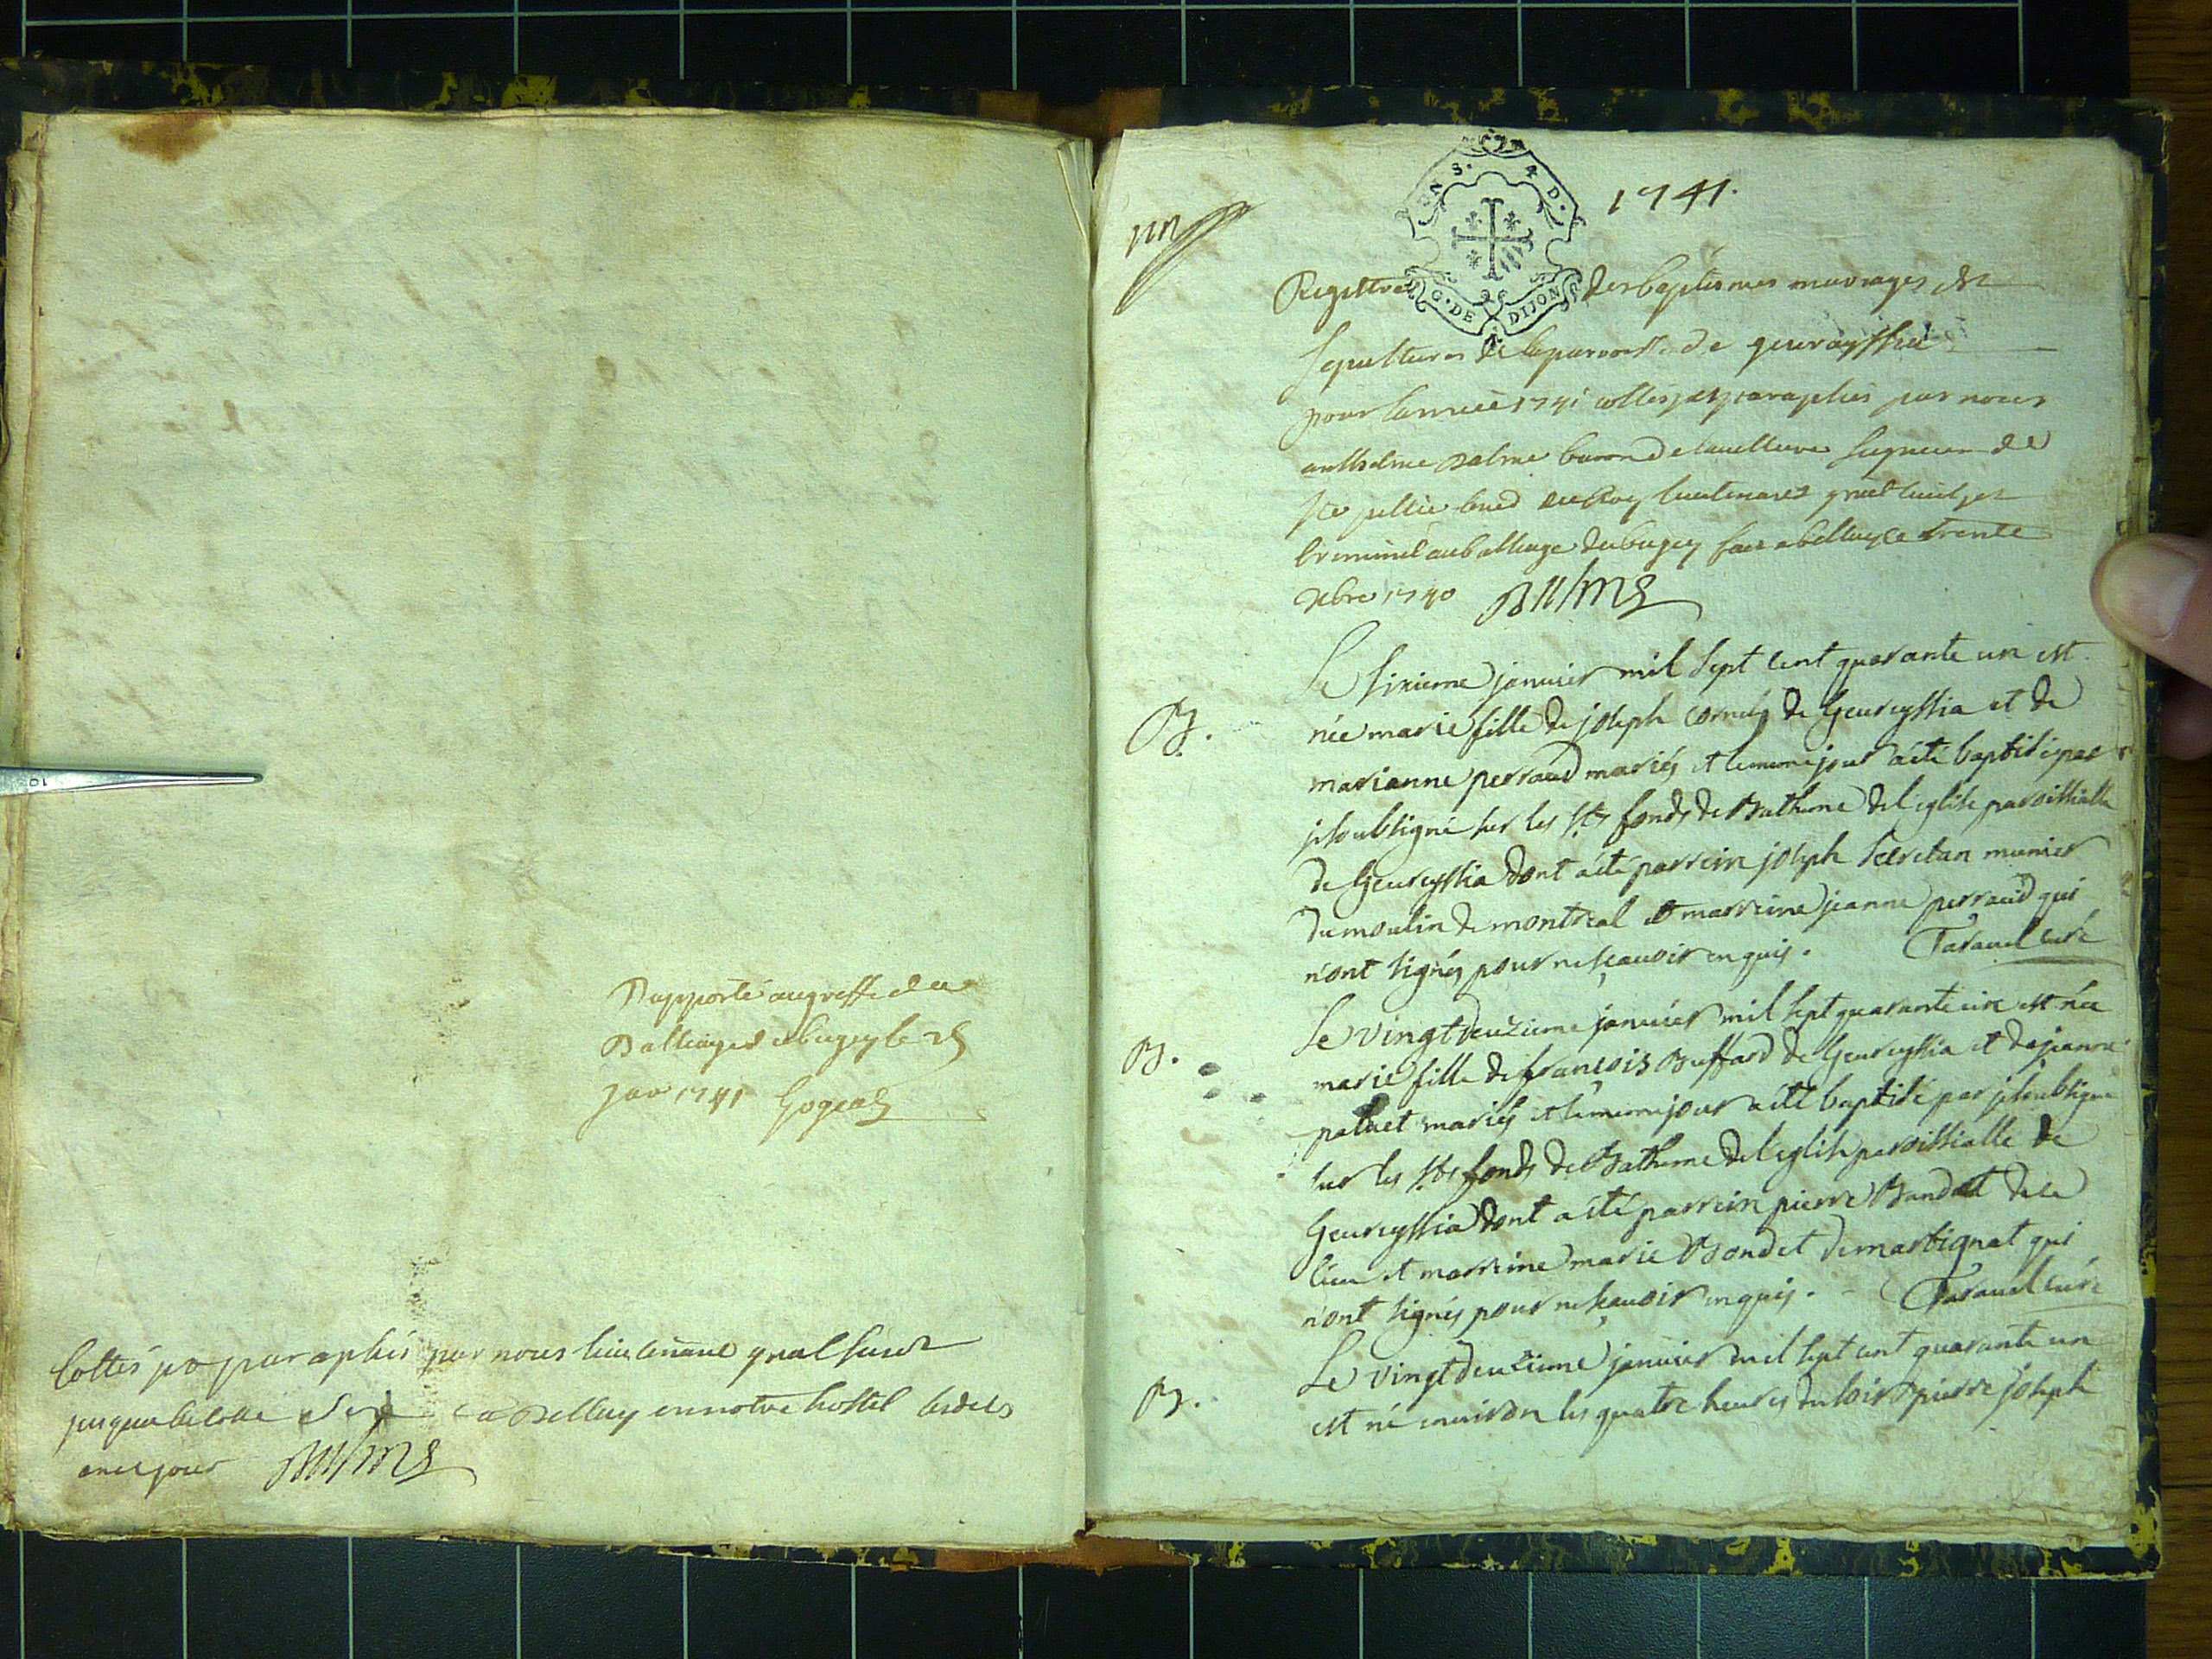 Rapporté au greffe du
Balliage de bugey le 25
janv 1741 Gogeat
Cottés et paraphés par nous lieutenant gnal susdt
jusques la cotte Sept a Belley en notre hostel lesdits
an et jour
un
GEN S. 4 D.
G. DE DIJON
1741.
Registres des baptismes mariages et
sepultures de la paroisse de geurayssiat
pour l'année 1741 cottés et paraphés par nous
anthelme Balme baron de seigneur de
Ste jullie coner du Roy lieutenant gnal civil et
criminel au balliage du bugey fait a belley ce trente
Xbre 1740
B. Le sixieme janvier mil sept cent quarante un est
née marie fille de joseph de Geureyssia et de
marianne perraud mariés et le meme jour a été baptisée par
je soubsigné sur les sts fonds de Bathéme de l'eglise paroissialle
de Geureyssia dont a été parrein joseph Secretan munier
du moulin de montreal et marreine jeanne perraud qui
n'ont signés pour ne sçauoir enquis. Taravel curé
B. Le vingt deuzieme janvier mil sept quarante un est née
marie fille de françois Buffard de Geureyssia et de jeanne
mariés et le meme jour a été baptisée par je soubsigné
sur les sts fonds de Bathéme de l'eglise paroissialle de
Geureyssia dont a été parrein pierre Bondet de ce
lieu et marreine marie Bondet de martignat qui
n'ont signés pour ne sçauoir enquis. Taravel curé
B. Le vingt deuzieme janvier mil sept cent quarante un
est né enuiron les quatre heures du soir pierre joseph